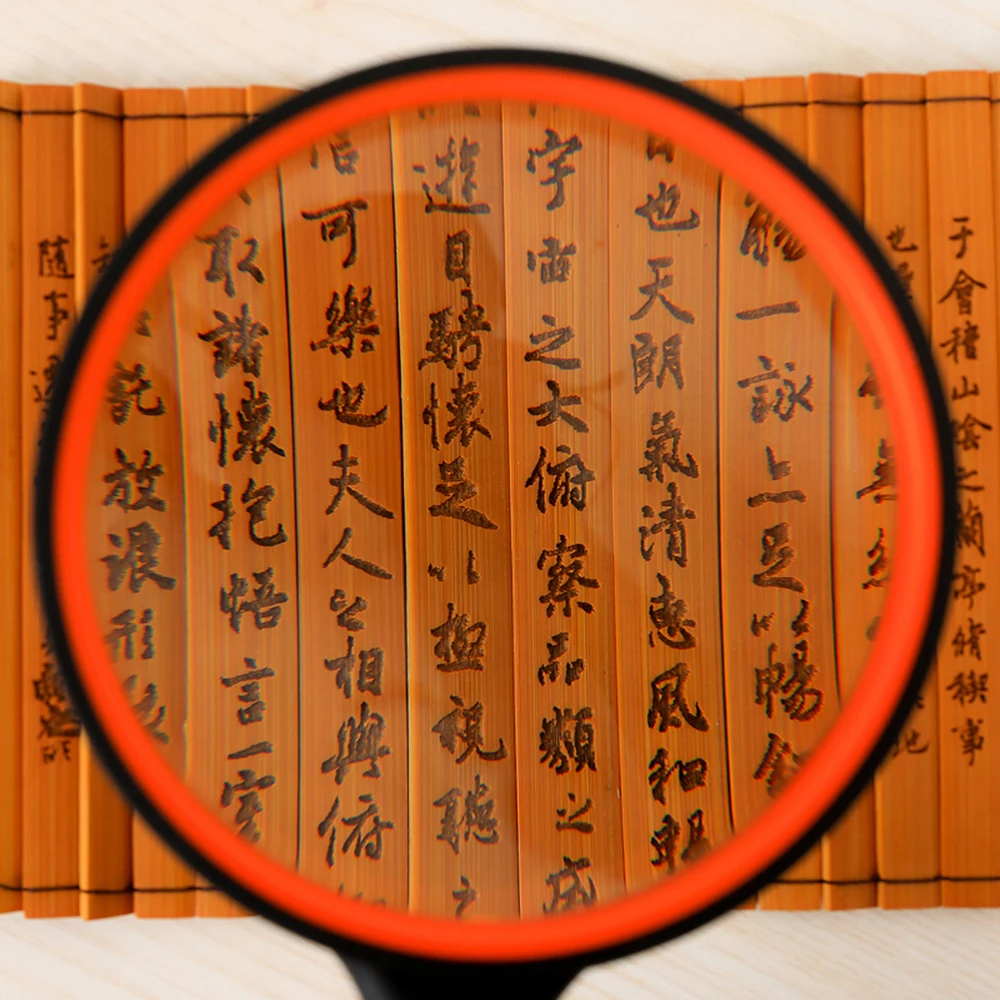 于會稽山陰之蘭亭脩禊事
也
地
無絲
觴一詠亦足以暢
日也天朗氣清惠風和暢
宇宙之大俯察品類之盛
遊目騁懷足以極視聽之
信可樂也夫人之相與俯
取諸懷抱悟言一室
託放浪形骸
隨事遷